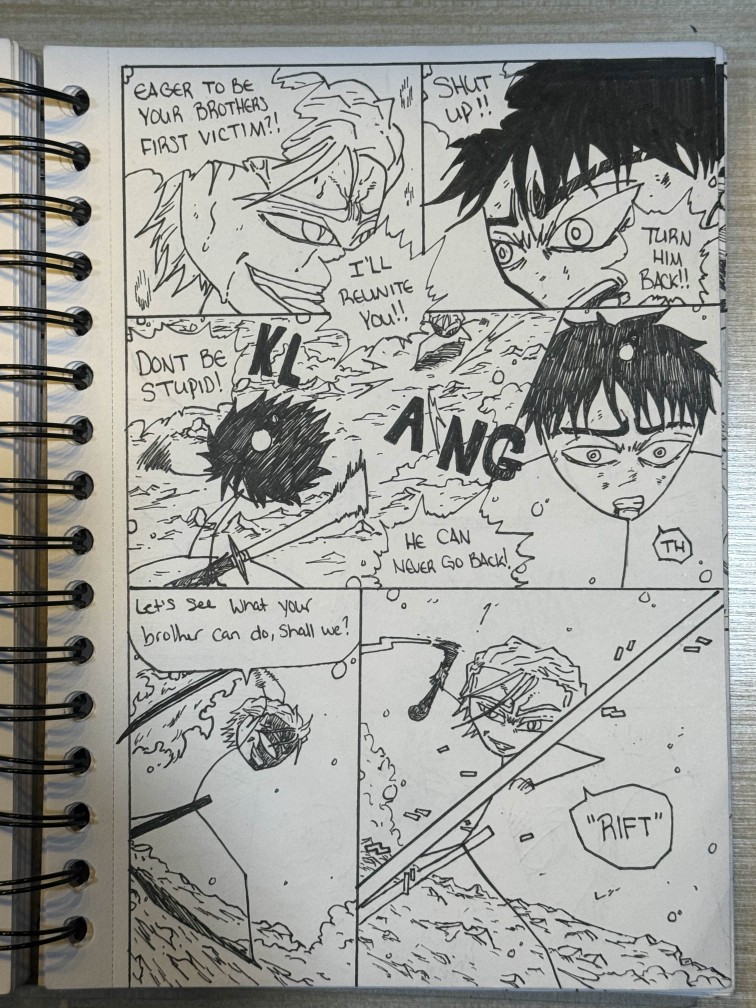 EAGER TO BE
YOUR BROTHERS
FIRST VICTIM?!!
I'LL
REUNITE
YOU!!
SHUT
UP!!
TURN
HIM
BACK!!
DONT BE
STUPID!
KL
ANG
HE CAN
NEVER GO BACK!
TH
Let's See What your
brother can do, Shall we?
"RIFT"